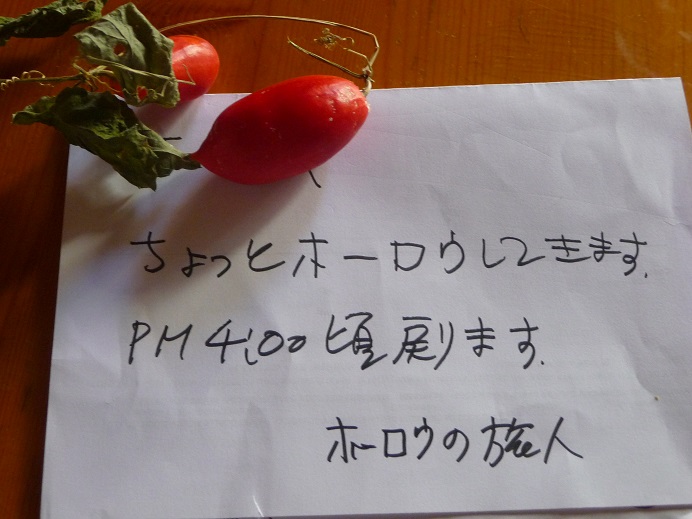 ちょっとホーロウしてきます.
PM 4:00 頃戻ります.
ホーロウの旅人